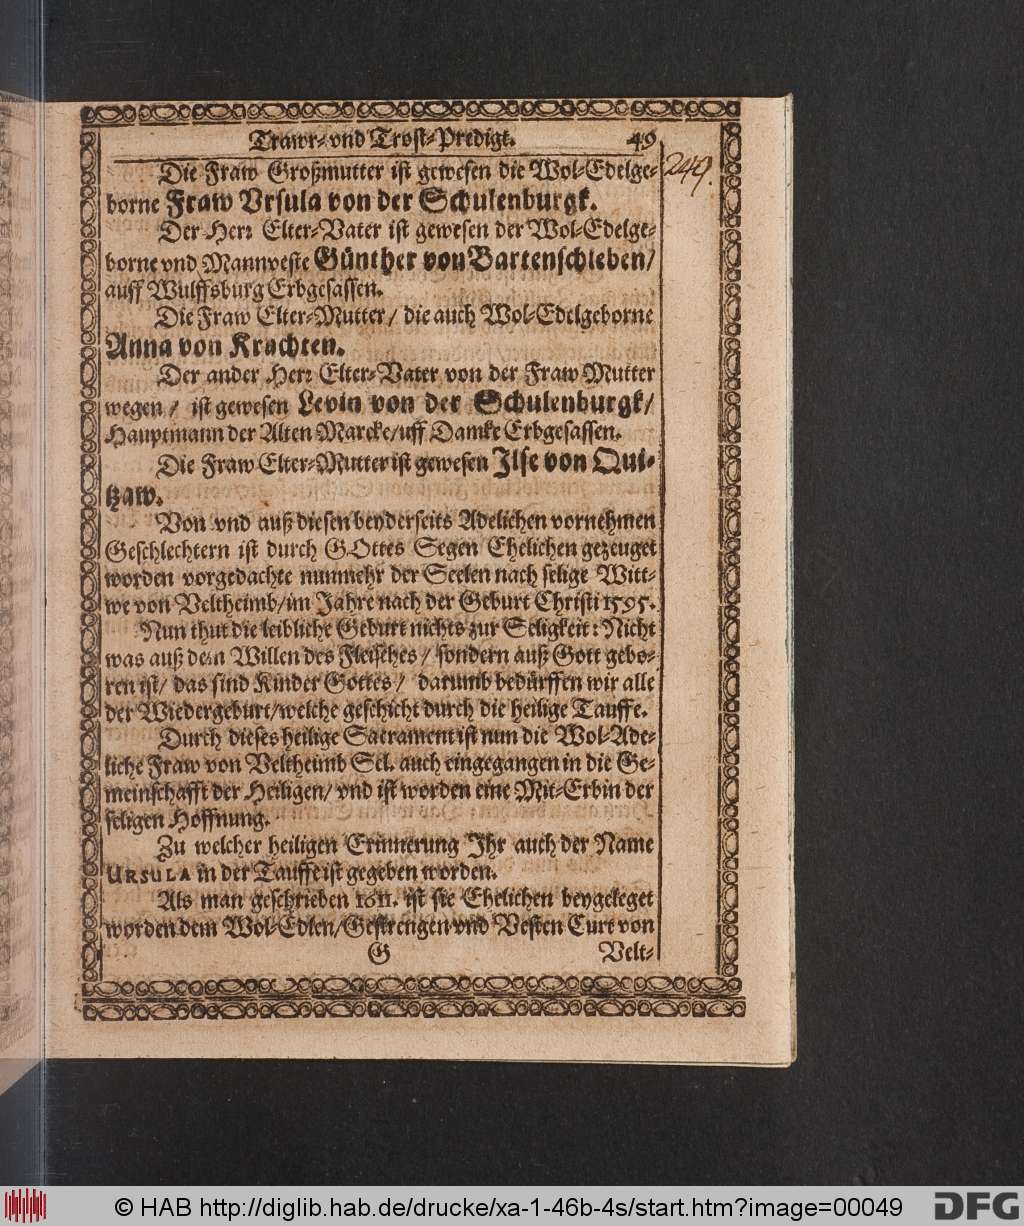 Trawr- vnd Trost-Predigt. 49
249.
Die Fraw Großmutter ist gewesen die Wol-Edelge-
borne Fraw Vrsula von der Schulenburgk.
Der Herr Elter-Vater ist gewesen der Wol-Edelge-
borne vnd Mannveste Günther von Bartenschleben/
auff Wulffsburg Erbgesassen.
Die Fraw Elter-Mutter/ die auch Wol-Edelgeborne
Anna von Krachten.
Der ander Herr Elter-Vater von der Fraw Mutter
wegen/ ist gewesen Levin von der Schulenburgk/
Hauptmann der Alten Marcke/uff Damke Erbgesassen.
Die Fraw Elter-Mutter ist gewesen Ilse von Qui-
tzaw.
Von vnd auß diesen beyderseits Adelichen vornehmen
Geschlechtern ist durch GOttes Segen Ehelichen gezeuget
worden vorgedachte nunmehr der Seelen nach selige Witt-
we von Veltheimb/im Jahre nach der Geburt Christi 1595.
Nun thut die leibliche Geburt nichts zur Seligkeit: Nicht
was auß dem Willen des Fleisches/ sondern auß Gott gebo-
ren ist/ das sind Kinder Gottes/ darumb bedürffen wir alle
der Wiedergeburt/welche geschicht durch die heilige Tauffe.
Durch dieses heilige Sacrament ist nun die Wol-Ade-
liche Fraw von Veltheimb Sel. auch eingegangen in die Ge-
meinschafft der Heiligen/ vnd ist worden eine Mit-Erbin der
seligen Hoffnung.
Zu welcher heiligen Erinnerung Ihr auch der Name
URSULA in der Tauffe ist gegeben worden.
Als man geschrieben 1611. ist sie Ehelichen beygeleget
worden dem Wol-Edlen/Gestrengen vnd Vesten Curt von
G Velt-
© HAB http://diglib.hab.de/drucke/xa-1-46b-4s/start.htm?image=00049
DFG